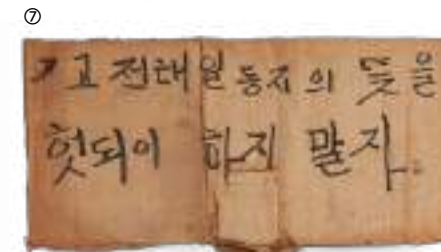 ⑦
故 전태일 동지의 뜻을
헛되이 하지 말자...